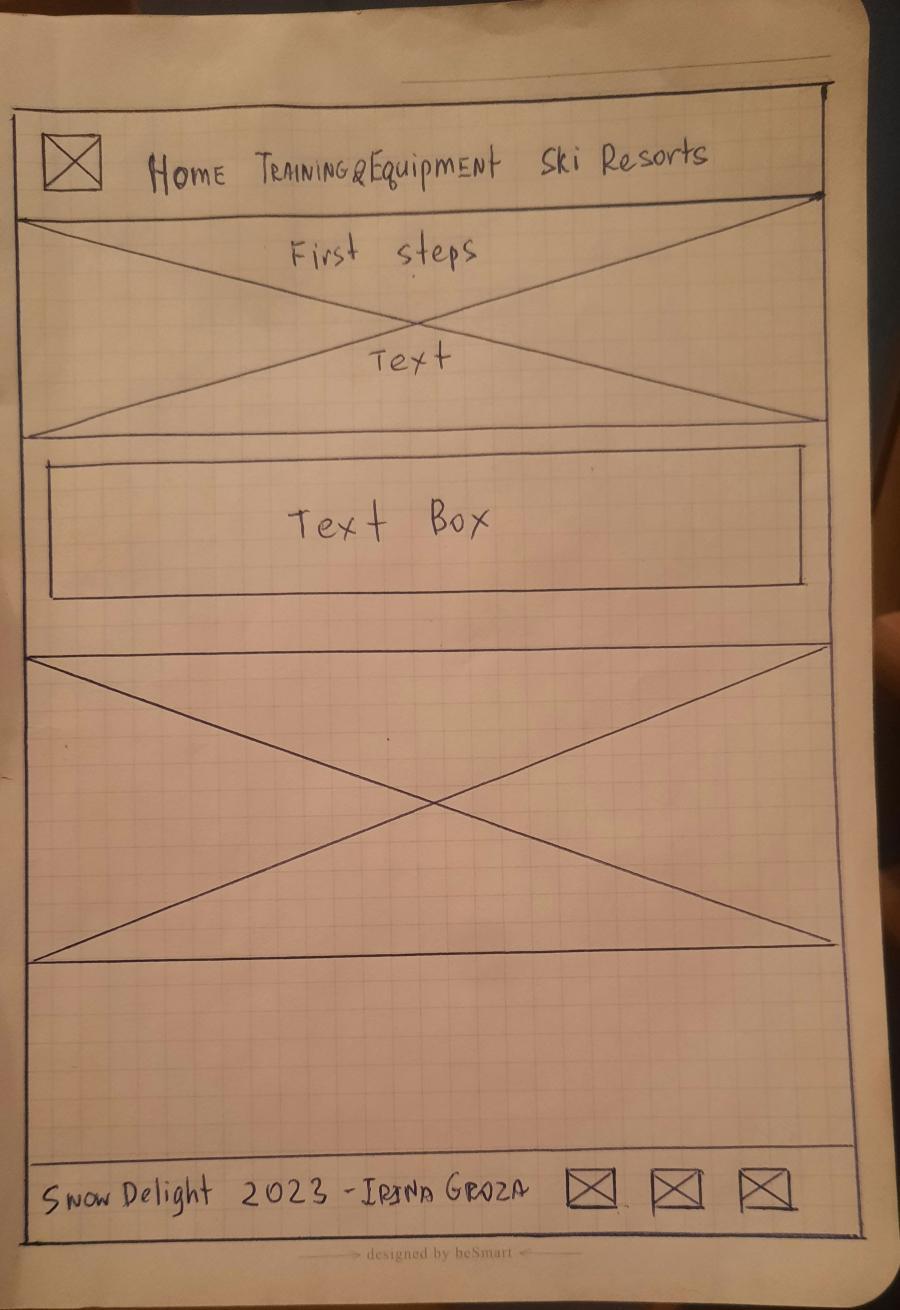 Home TRAINING&EquipmENt Ski Resorts
First steps
Text
Text Box
Snow Delight 2023 - IRINA GROZA
designed by beSmart